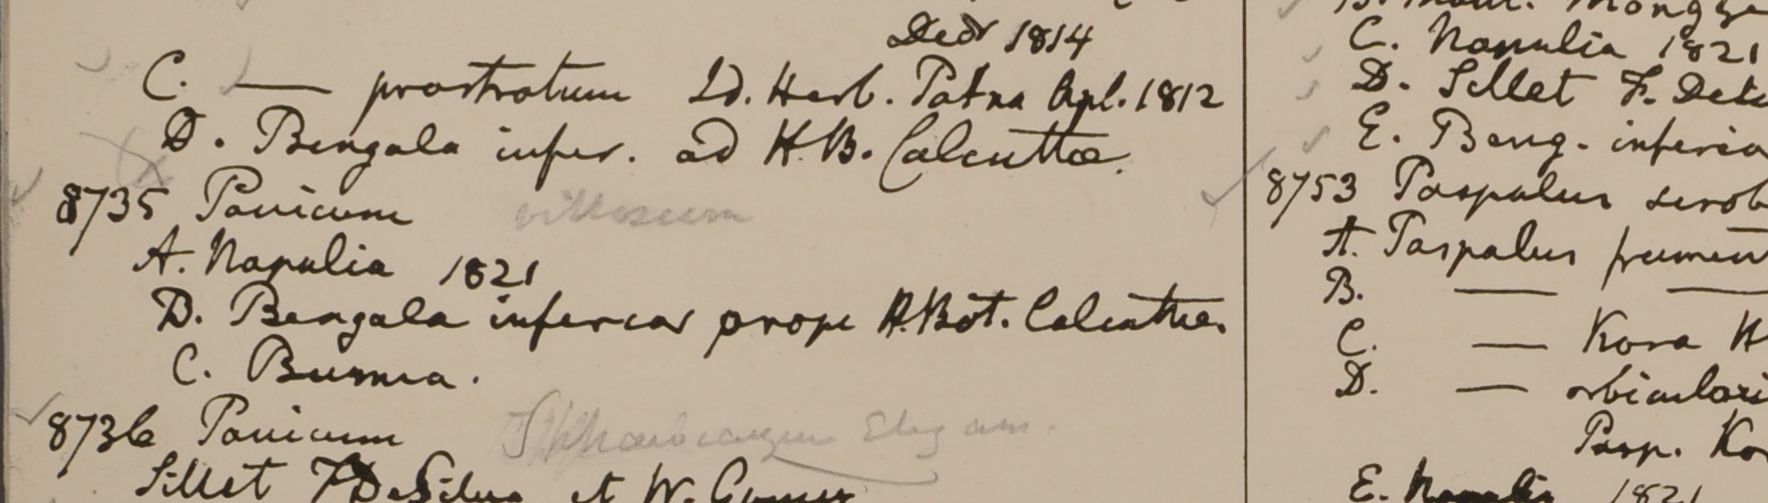 Dedt 1814
C. — prostratum Id. Herb. Patna Apl. 1812
D. Bengala infer. ad H. B. Calcuttae.
8735 Panicum villosum
A. Napulia 1821
B. Bengala inferior prope H. Bot. Calcuttae.
C. Burma.
8736 Panicum Elegans.
Sillet F. De Silva et W. Gomez
C. Napulia 1821
D. Sillet F. De
E. Beng. inferio
8753 Paspalus scrob
A. Paspalus frumen
B. — —
C. — Kora H
D. — orbiculari
Pasp. Ko
E. Napulia 1821